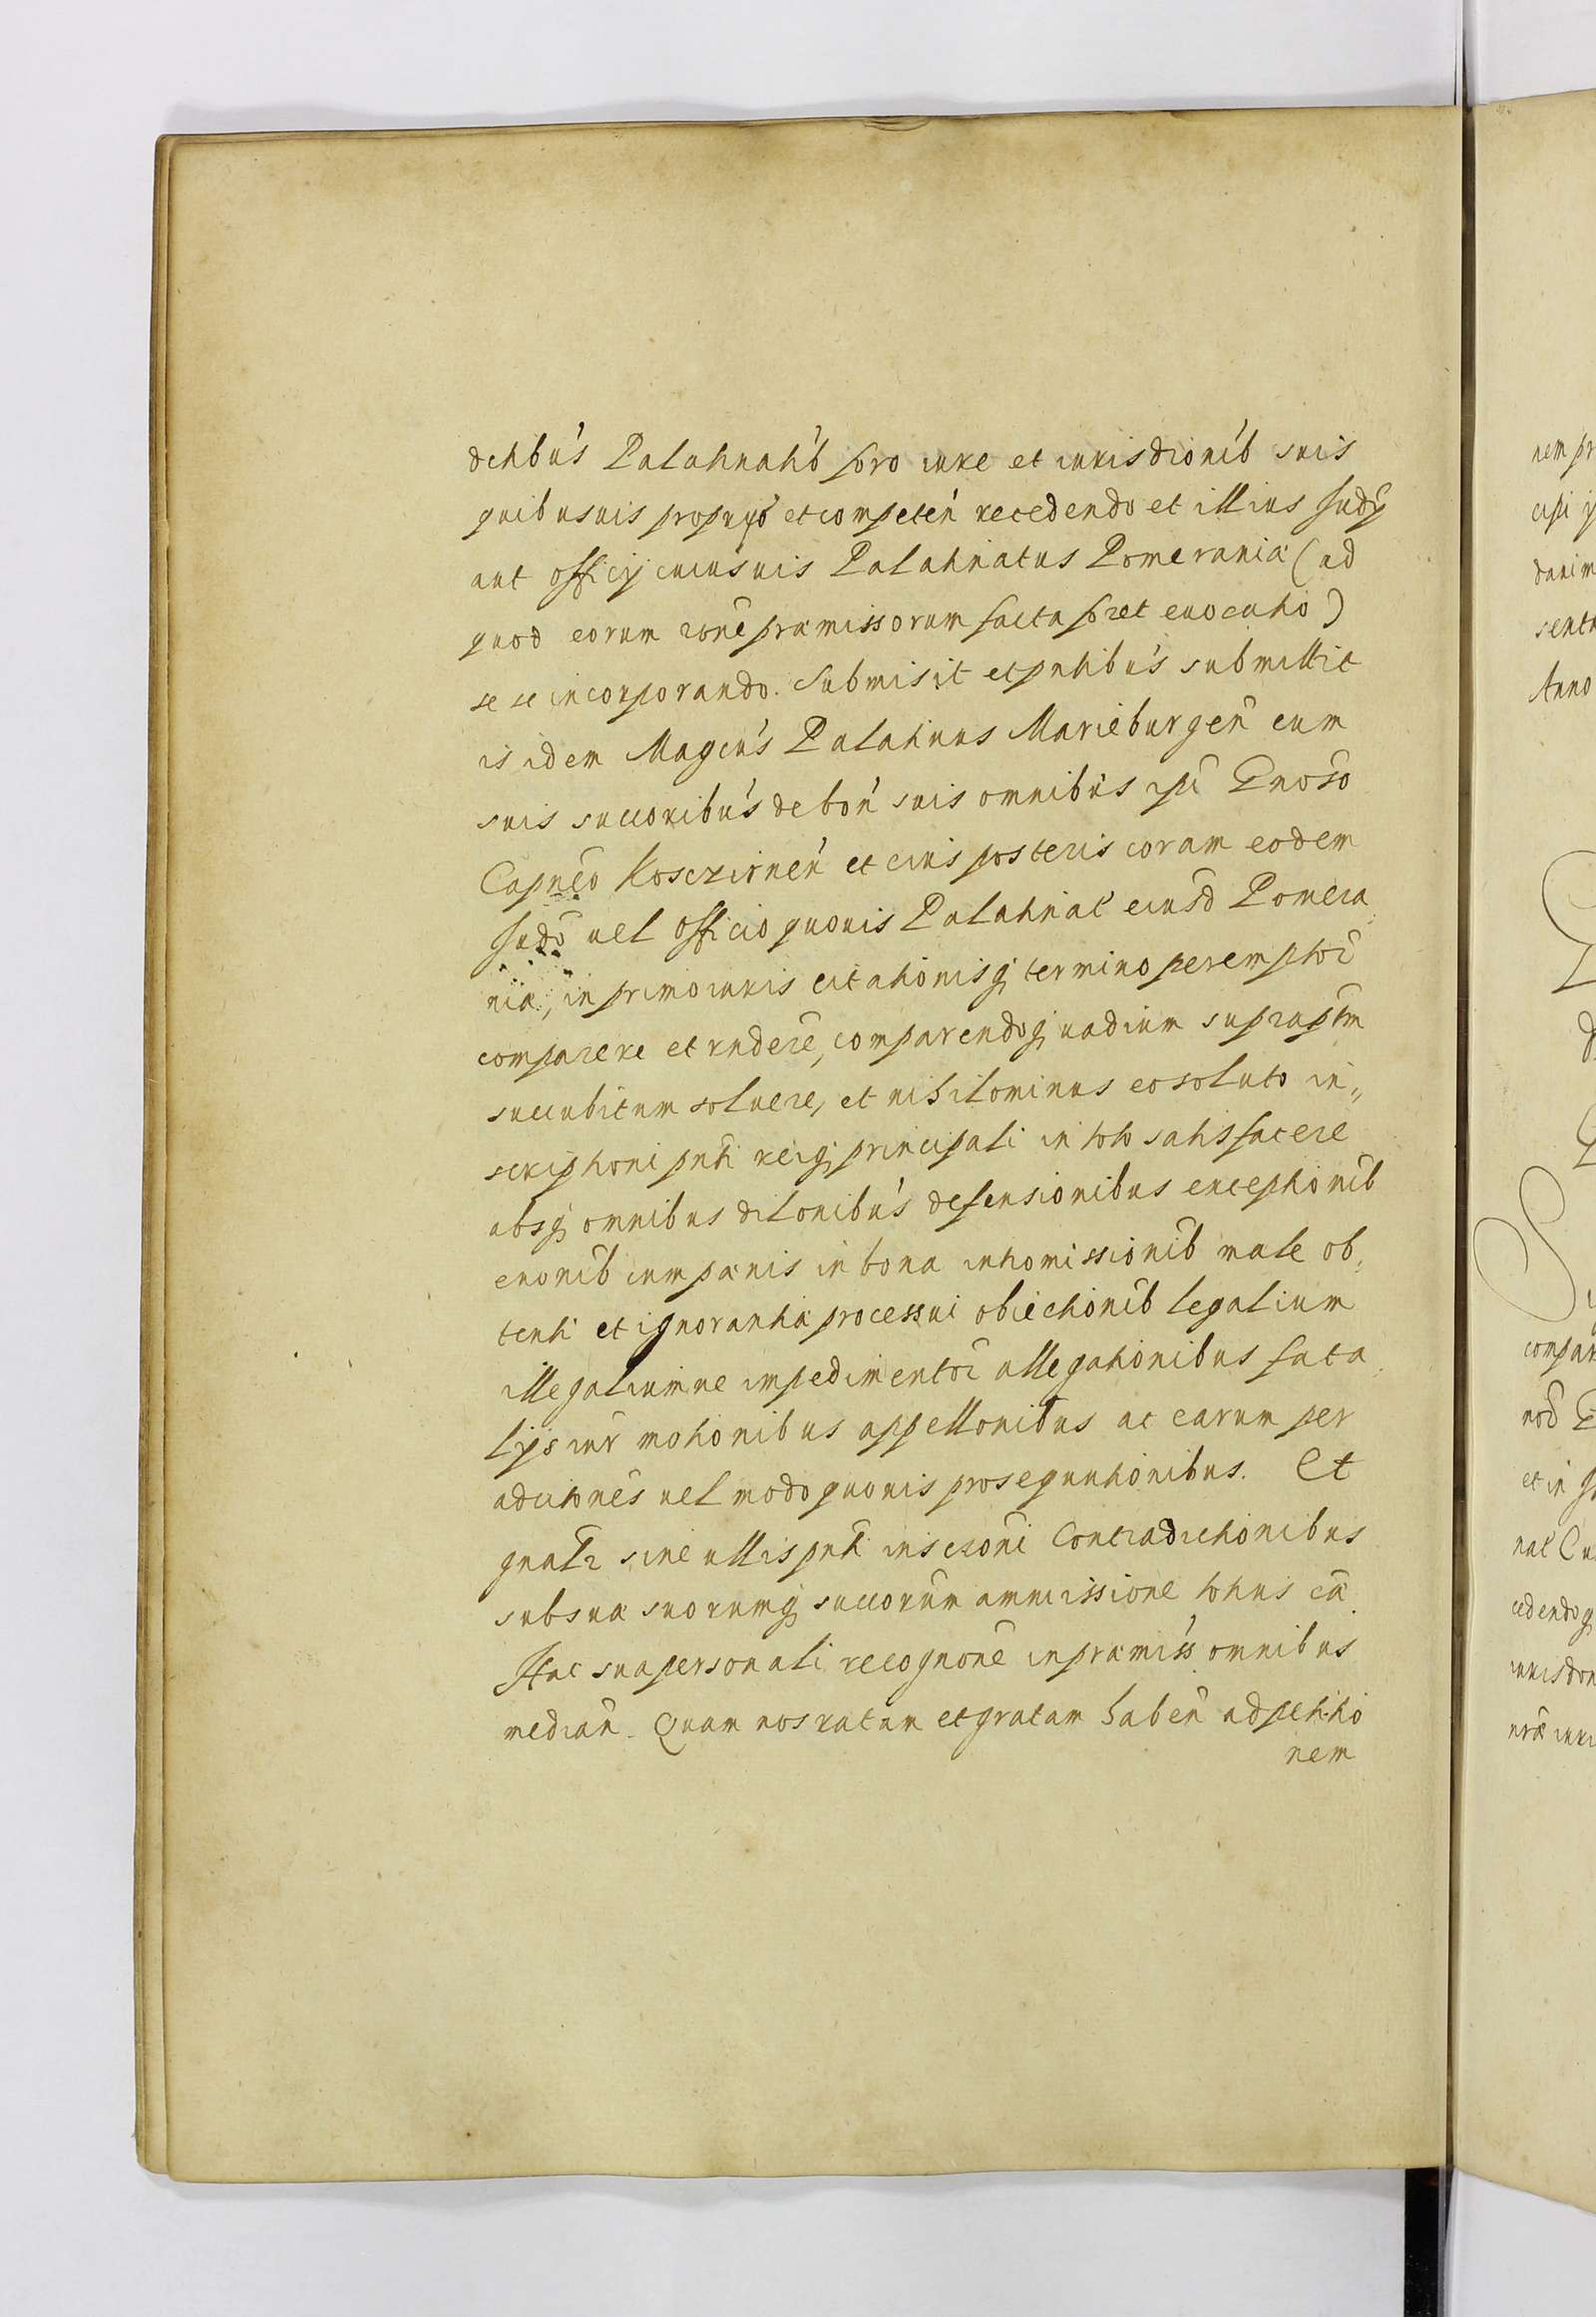 dentibus Palatinatib foro iure et iurisdionib suis
quibusuis proprys et competen recedendo et illius Judy
aut officy cuiusuis Palatinatus Pomeraniæ (ad
quod eorum rone præmissorum facta foret euocatio)
se se incorporando. Submisit et pntibus submittit
is idem Magcus Palatinus Marieburgen eum
suis succoribus de bon suis omnibus ipi Gnoso
Capneo Kosczirnen et eius posteris coram eodem
Judo uel Officio quouis Palatinat eiusd Pomera,
niæ, in primo iuris citationisq termino peremptor
comparere et rndere, comparendoq uadium supraptm
succubitum soluere, et nihilominus eo soluto in,,
scriptioni pnti reiq principali in toto satisfacere
absq omnibus dilonibus defensionibus exceptionib
euonib iumpanis in bona intromissionib male ob,
tenti et ignorantiæ processui obiectionib legalium
illegaliumue impedimentor allegationibus fata,
lys iur motionibus appellonibus ac earum per
adcitones uel modo quouis prosequutionibus. Et
gnalr sine ullis pnti inscroni Contradictionibus
sub sua suorumq succorum ammissione totius cæ
Hac sua personali recognone in præmiss omnibus
median. Quam nos ratam et gratam haben ad petitio
nem
nem pr
dani m
Anno
compar
nod
et in
cedendoq
iurisdon